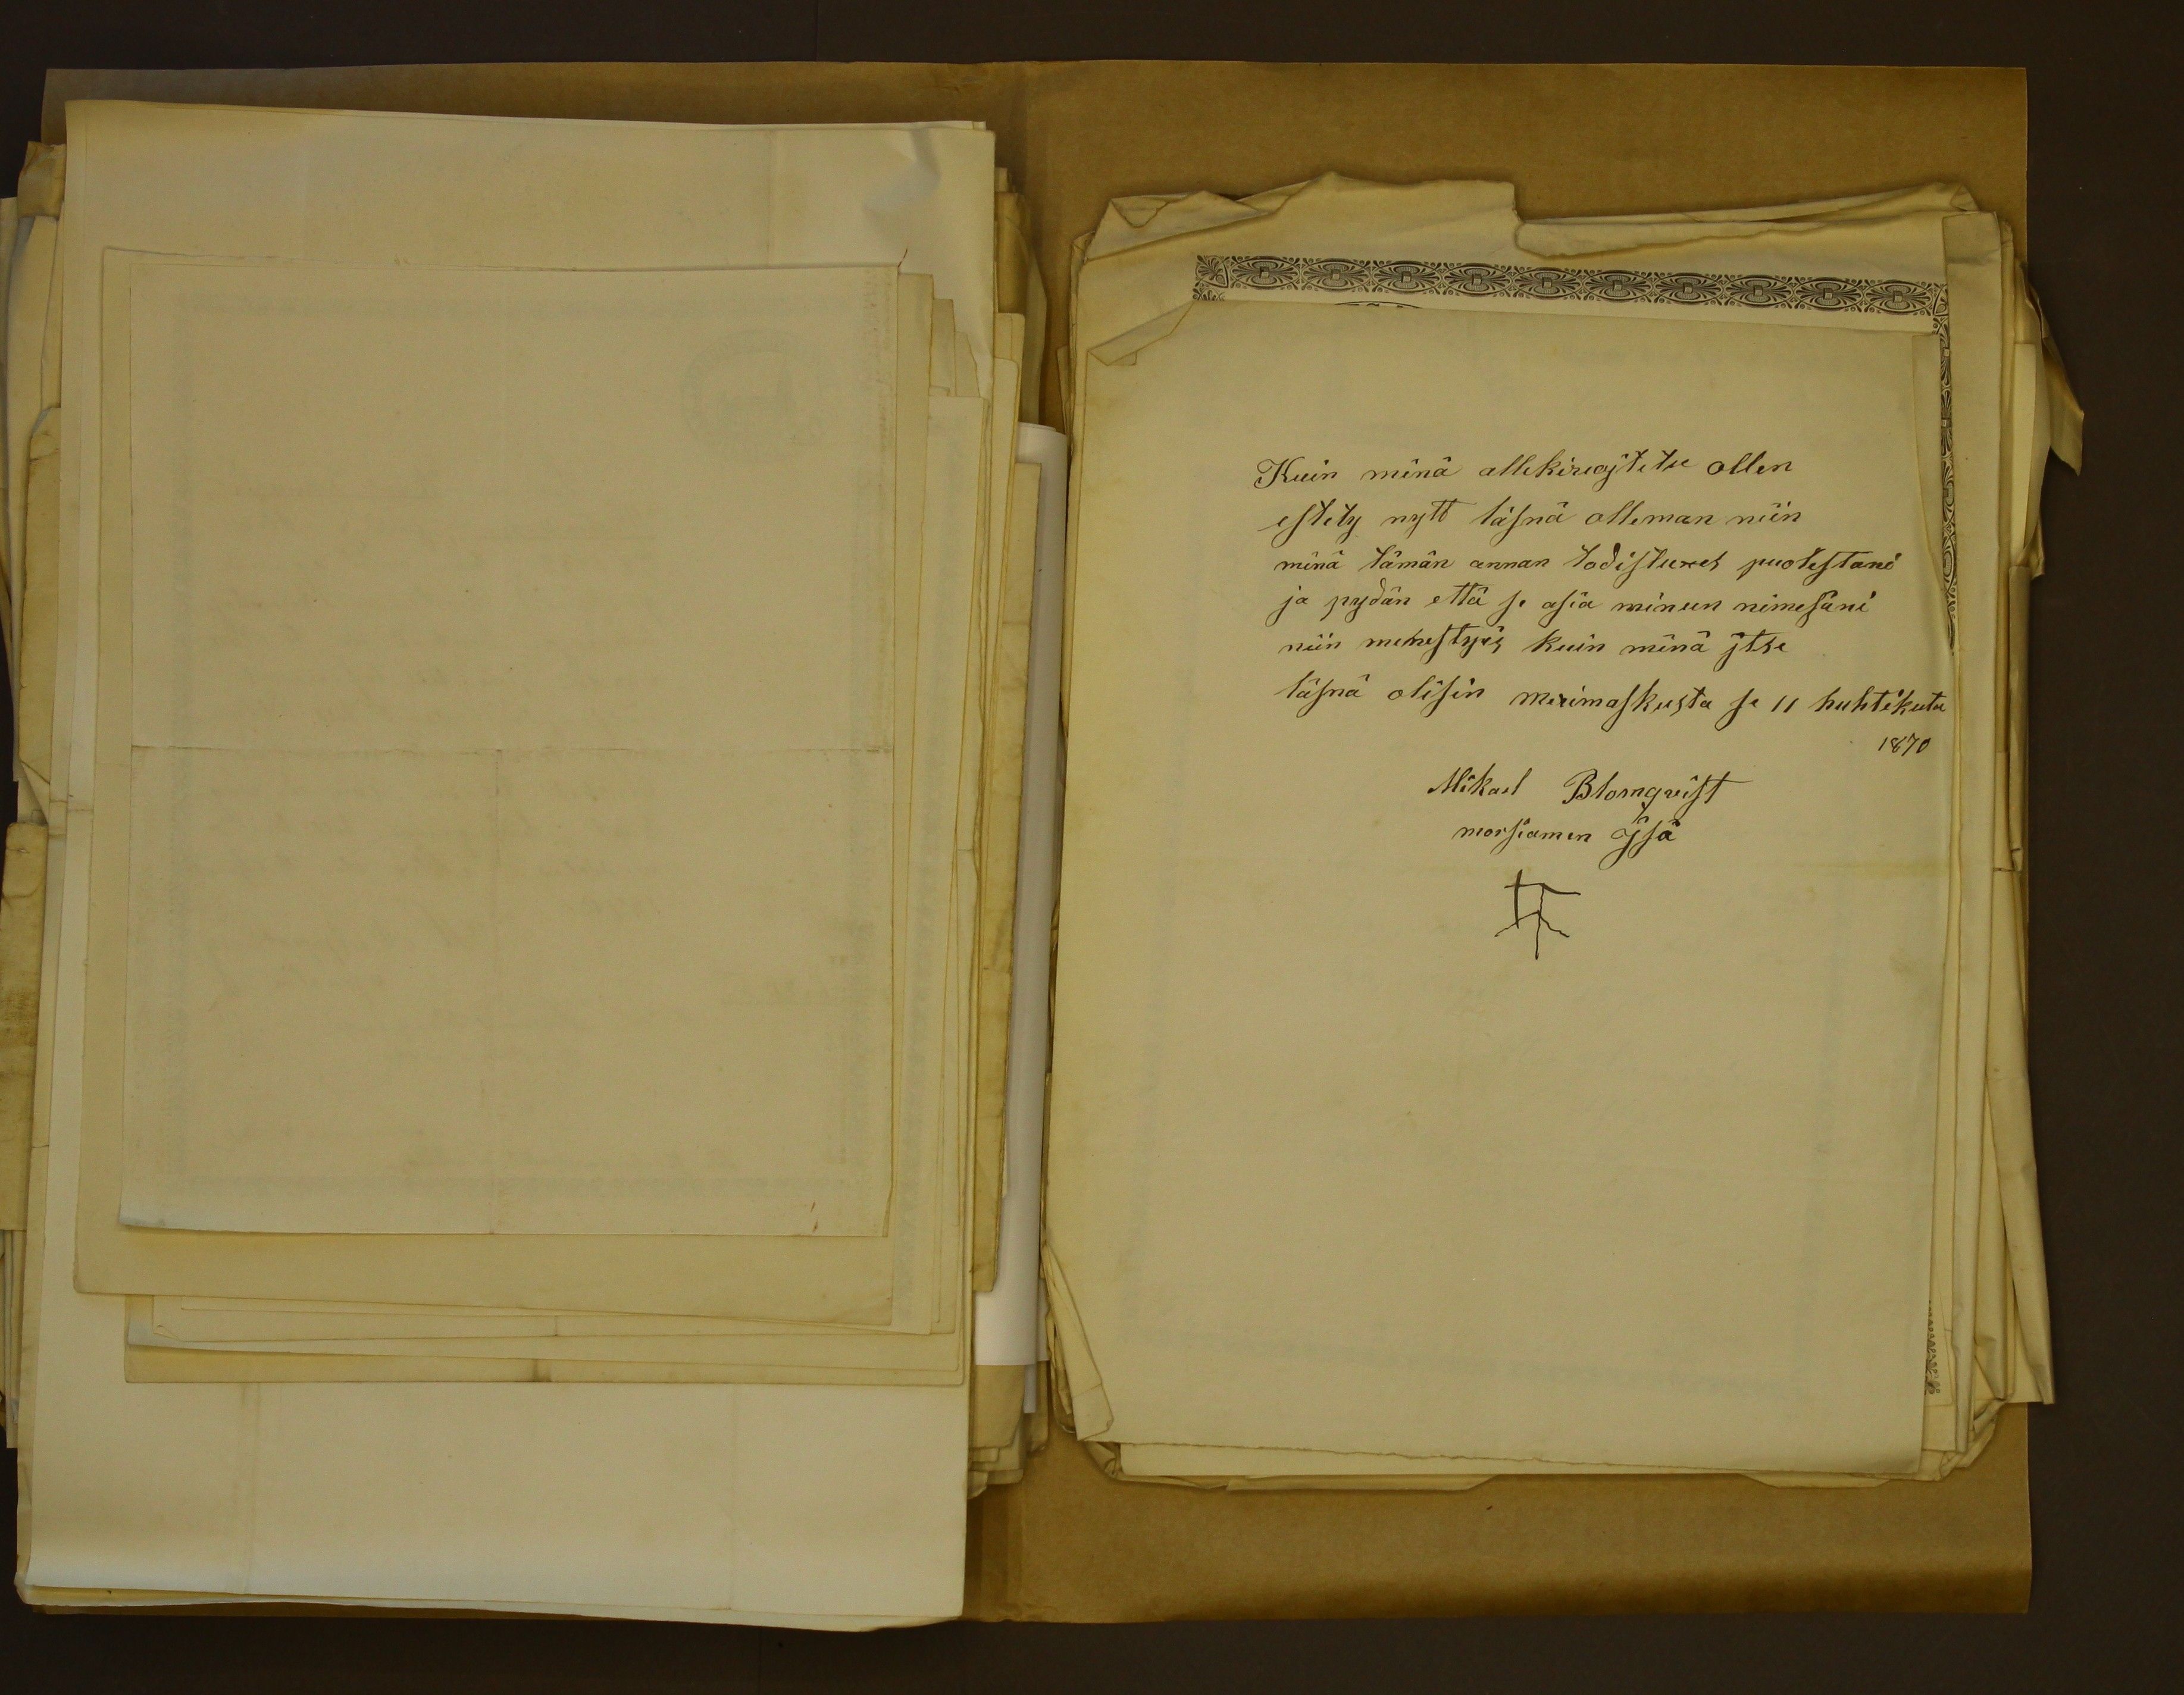 Kuin minä allekirxojtetu ollen
estety nytt läsnä olleman niin
minä tämän annan todistuxet puolestani
ja pydän että se asia minun nimesäni
niin menestyis kuin minä jtse
läsnä olisin merimaskusta se 11 huhtikuta
1870
Mikael Blomqvist
morsiamen jsä